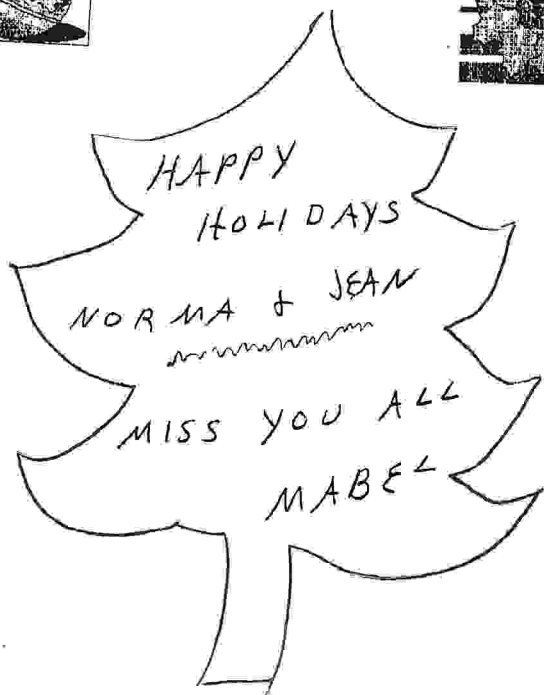 HAPPY
HOLIDAYS
NORMA & JEAN
MISS YOU ALL
MABEL